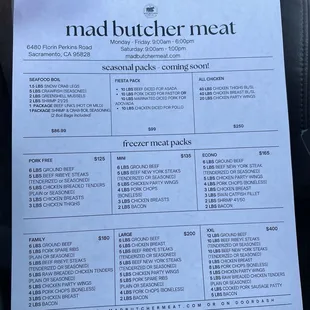 mad butcher meat
Monday - Friday: 9:00am - 6:00pm
Saturday: 9:00am - 1:00pm
madbutchermeat.com
6480 Florin Perkins Road
Sacramento, CA 95828
seasonal packs - coming soon!
SEAFOOD BOIL
1.5 LBS SNOW CRAB LEGS
5 LBS CRAWFISH (SEASONED)
2 LBS GREENSHELL MUSSELS
2 LBS SHRIMP
1 PACKAGE BEEF LINKS (HOT OR MILD)
1 PACKAGE SHRIMP & CRAB BOIL SEASONING
(2 Boil Bags Included)
FIESTA PACK
10 LBS BEEF DICED FOR ASADA
10 LBS PORK DICED FOR PASTOR OR
10 LBS MARINATED DICED PORK FOR
ADOVADA
10 LBS CHICKEN DICED FOR POLLO
$99
ALL CHICKEN
40 LBS CHICKEN THIGHS BL/SL
40 LBS CHICKEN BREAST BL/SL
20 LBS CHICKEN PARTY WINGS
$250
freezer meat packs
PORK FREE $125
5 LBS GROUND BEEF
5 LBS BEEF RIBEYE STEAKS
(TENDERIZED OR SEASONED)
5 LBS CHICKEN BREADED TENDERS
PLAIN OR SEASONED)
3 LBS CHICKEN BREAST
5 LBS CHICKEN THIGHS
MINI $135
5 LBS GROUND BEEF
5 LBS BEEF NEW YORK STEAKS
(TENDERIZED OR SEASONED)
5 LBS CHICKEN PARTY WINGS
4 LBS PORK CHOPS
(BONELESS)
3 LBS CHICKEN BREAST
2 LBS BACON
ECONO $165
5 LBS GROUND BEEF
5 LBS BEEF NEW YORK STEAK
(TENDERIZED OR SEASONED)
5 LBS CHICKEN PARTY WINGS
4 LBS PORK CHOPS (BONELESS)
3 LBS CHICKEN BREAST
5 LBS SWAI CATFISH FILLET
2 LBS SHRIMP
2 LBS BACON
FAMILY $180
5 LBS GROUND BEEF
5 LBS PORK SPARE RIBS
PLAIN OR SEASONED)
5 LBS BEEF RIBEYE STEAKS
(TENDERIZED OR SEASONED)
5 LBS BREADED CHICKEN TENDERS
(PLAIN OR SEASONED)
5 LBS CHICKEN BREAST
4 LBS PORK CHOPS (BONELESS)
2 LBS BACON
LARGE $200
10 LBS GROUND BEEF
5 LBS BEEF RIBEYE STEAKS
(TENDERIZED OR SEASONED)
5 LBS BEEF NEW YORK STEAKS
(TENDERIZED OR SEASONED)
5 LBS CHICKEN PARTY WINGS
5 LBS PORK SPARE RIBS
(PLAIN OR SEASONED)
4 LBS PORK CHOPS (BONELESS)
3 LBS CHICKEN BREAST
2 LBS BACON
XXL $400
10 LBS GROUND BEEF
10 LBS BEEF RIBEYE STEAKS
(TENDERIZED OR SEASONED)
5 LBS BEEF NEW YORK STEAKS
(TENDERIZED OR SEASONED)
5 LBS CHICKEN PARTY WINGS
5 LBS RAW BREADED CHICKEN TENDERS
(PLAIN OR SEASONED)
4 LBS COOKED PORK SAUSAGE PATTY
5 LBS CHICKEN BREAST
4 LBS PORK CHOPS (BONELESS)
5 LBS BACON
MADBUTCHERMEAT.COM OR ON DOORDASH